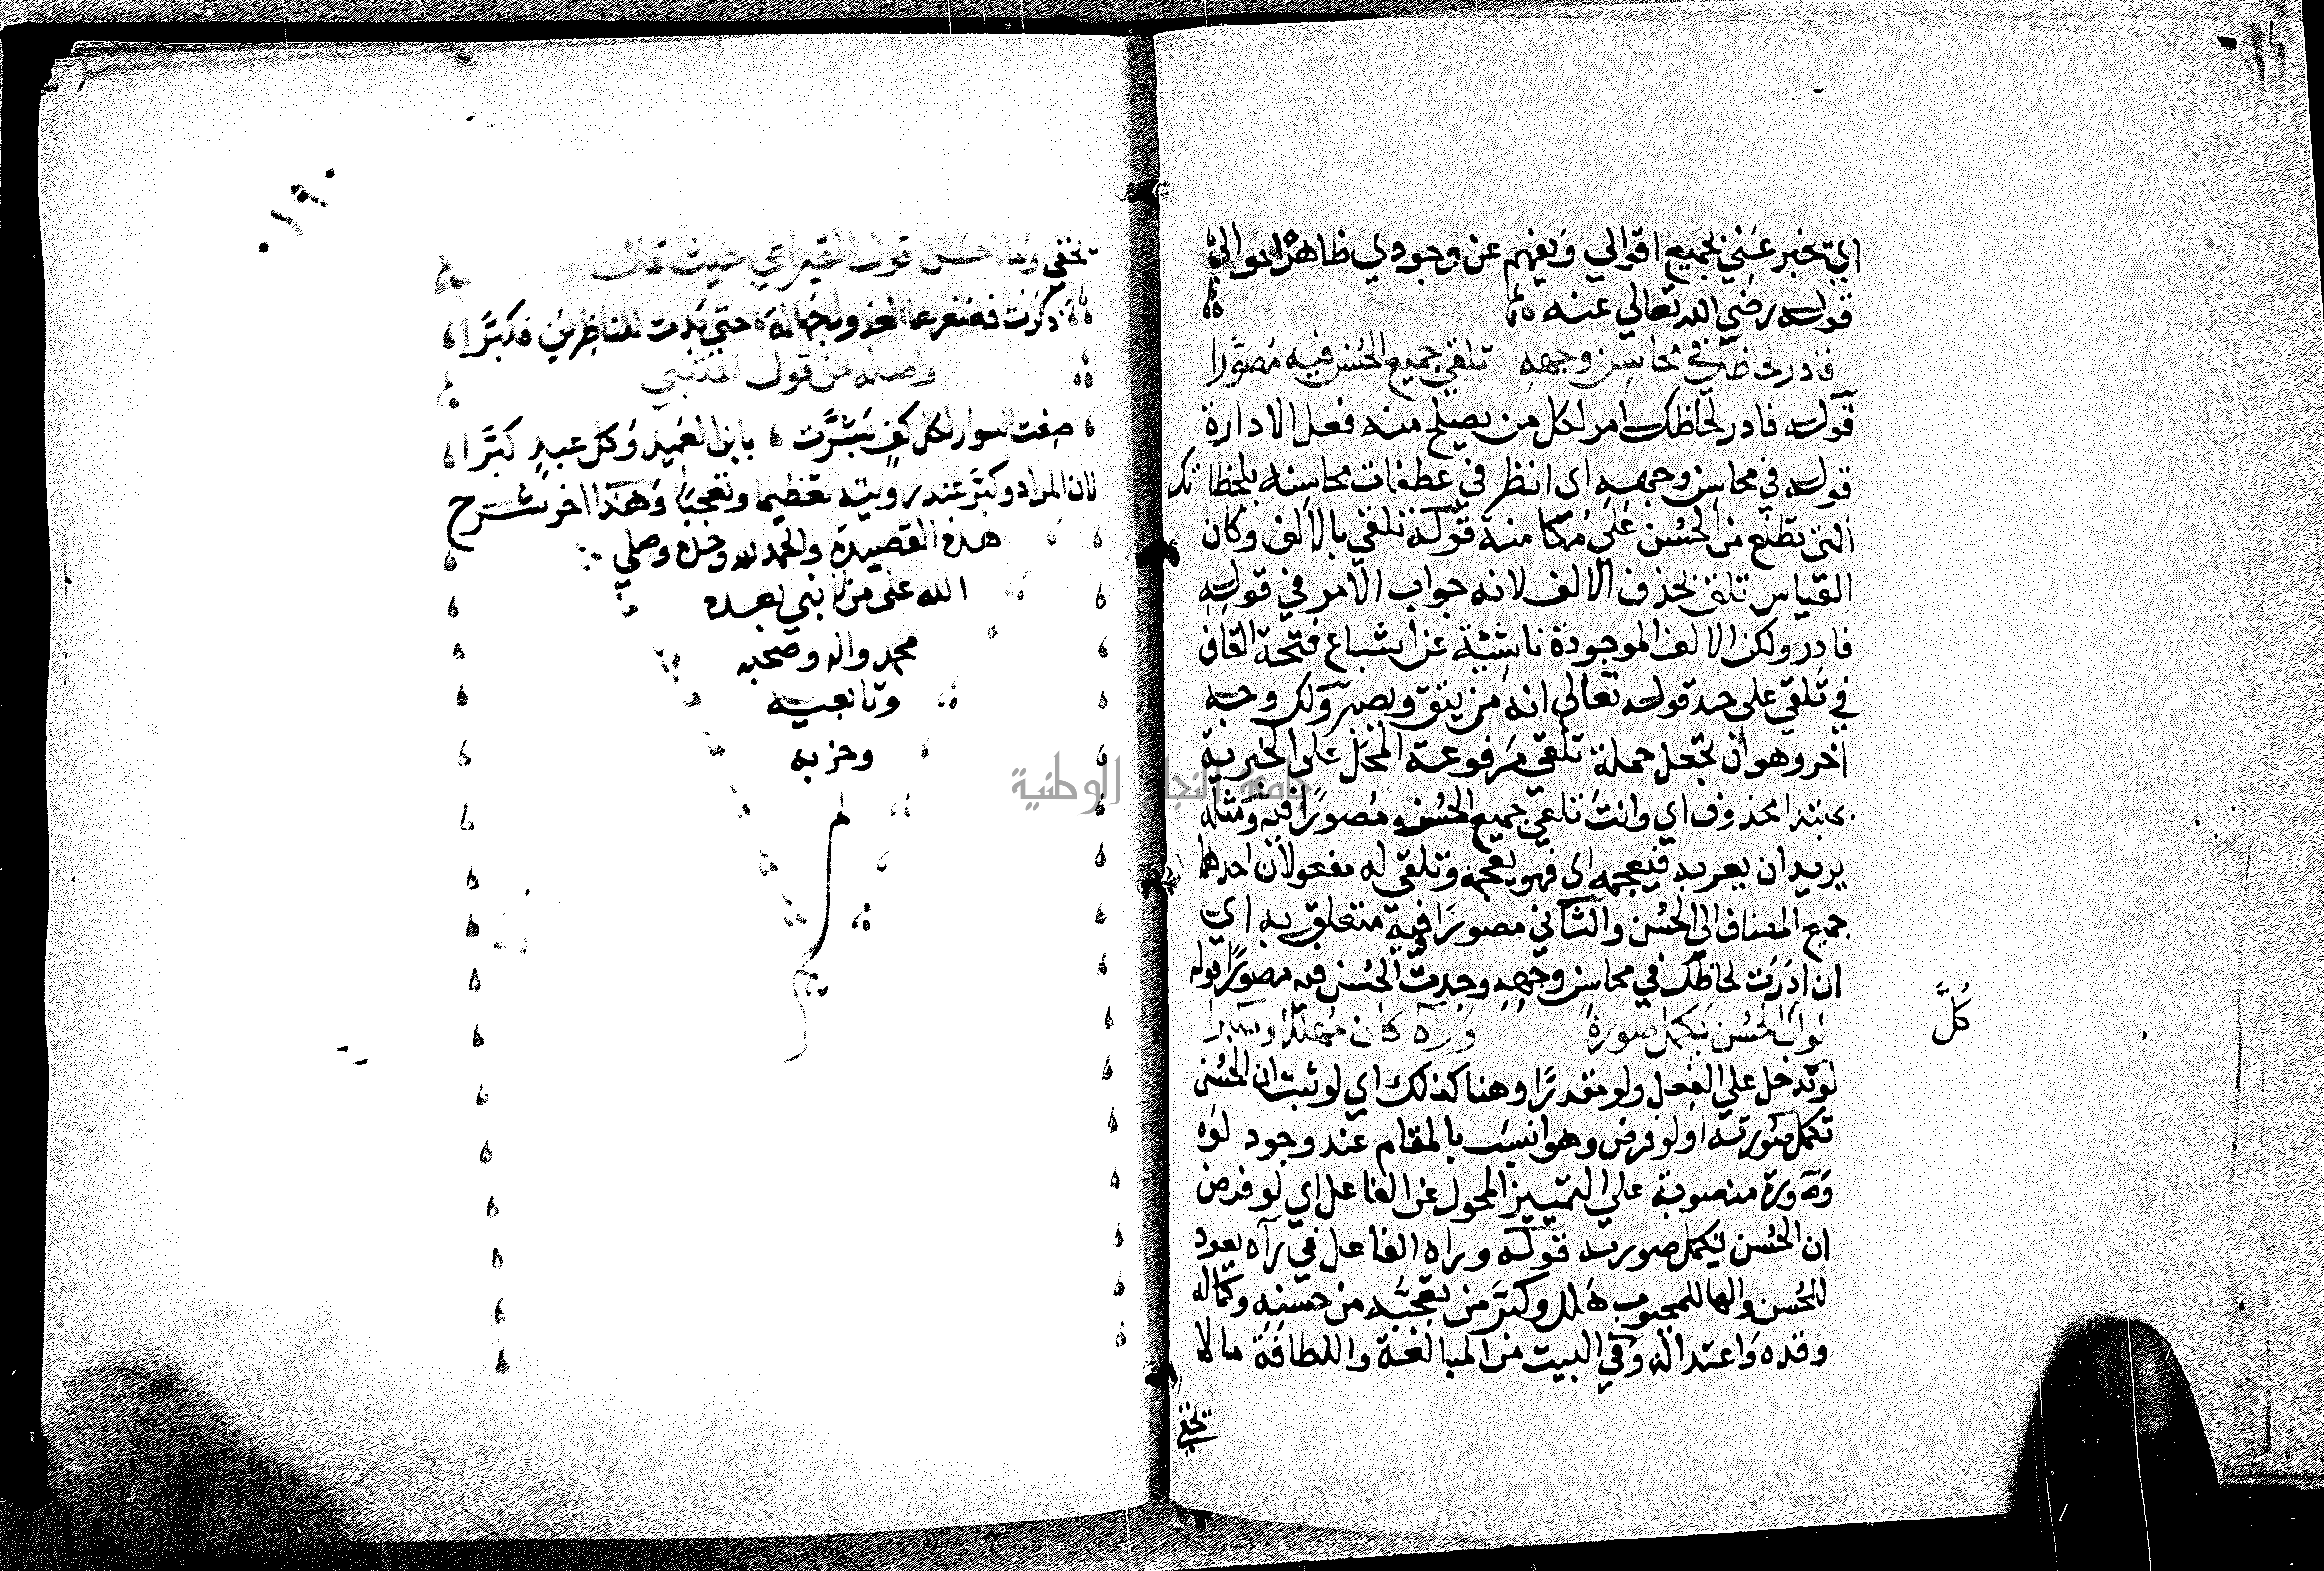 اي تخبر عني بجميع اقوالي ويفهم عن وجودي ظاهرا
قوله رضي الله تعالي عنه
فادر لحاظك في محاسن وجهه تلقي جميع الحسن فيه مُصَوَّرا
قوله فادر لحاظك امر لكل من يصلح منه فعل الادارة
قوله في محاسن وجهه اي انظر في عطفات محاسنه بلحظاتك
التي تطلع من الحسن علي مكامنه قوله تلقي بالالف وكان
القياس تلق بحذف الالف لانه جواب الامر في قوله
فادر ولكن الالف الموجودة ناشية عن اشباع فتحة القاف
في تلقي علي حد قوله تعالي انه من يتق ويصبر ولك وجه
اخر وهو ان تجعل جملة تلقي مرفوعة المحل علي الخبرية
بمبتدا محذوف اي وانت تلقي جميع الحسن مصورًا فيه ومثله
يريد ان يعربه فيعجمه اي فهو يعجمه وتلقي له مفعولان احدهما
جميع المضاف الي الحسن والثاني مصورًا فيه متعلق به اي
ان ادرت لحاظك في محاسن وجهه وجدت الحسن فيه مصورًا قوله
كُلَّ
لو ان الحُسن يكمل صورة ورآه كان مهللا ومكبرا
لو تدخل علي الفعل ولو مقدرًا وهنا كذلك اي لو ثبت ان الحُسن
تكمل صورته او لو فرض وهو انسب بالمقام عند وجود لو
وصورة منصوبة علي التمييز المحول عن الفاعل اي لو فرض
ان الحُسن تكمل صورته قوله وراه الفاعل في رآه يعود
للحُسن والها للمحبوب هلل وكبر من تعجبه من حسنه وكماله
وقده واعتداله وفي البيت من المبالغة واللطافة ما لا
تخفي
١٩٠
تخفي وما احسن قول القيراطي حيث قال
ذكرت فصغرها العدو جهالة حتي بدت للناظرين فكبرا
واصله من قول المتنبي
صغت السوار لكل كف بشرت بابن العميد وكل عبد كبرا
لان المراد وكبر عند رويته تعظيما وتعجبا وهذا اخر شرح
هذه القصيدة والحمد لله وحده وصلي
الله علي من لا نبي بعده
محمد واله وصحبه
وتابعيه
وحزبه
جامعة النجاح الوطنية